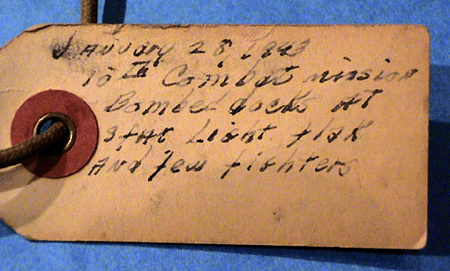 January 28, 1943
10th Combat mission
Bombed docks At
SfAx Light flak
And few fighters